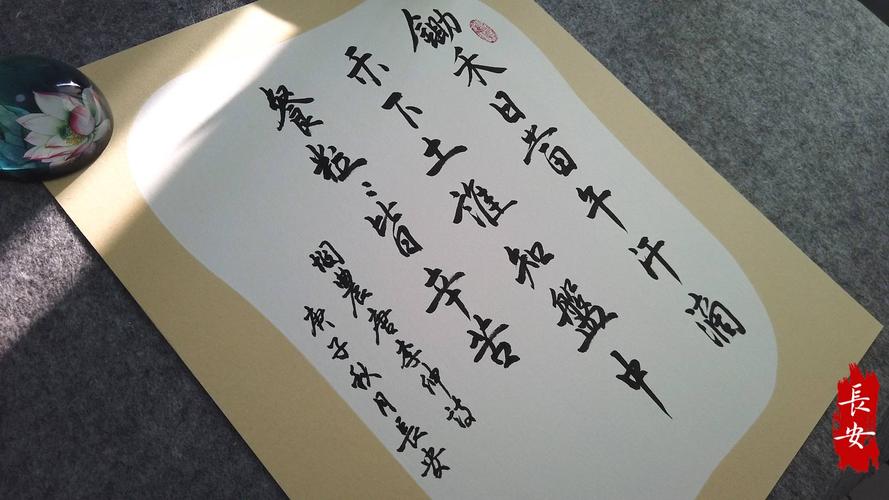 鋤禾日當午汗滴
禾下土誰知盤中
餐粒〻皆辛苦
憫農唐李紳詩
庚子秋月長安
長安